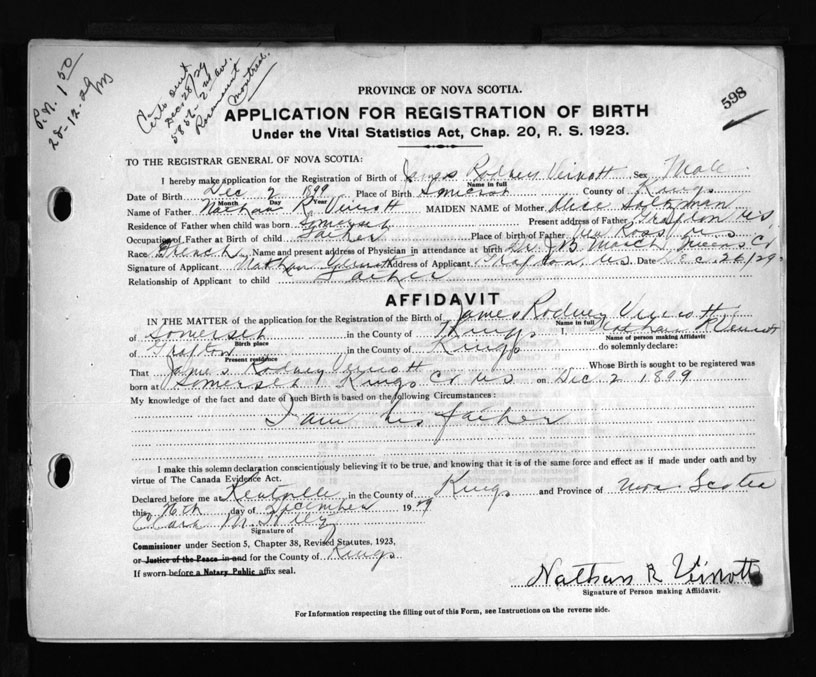 P.N. 1 50
28-12-29
Certs sent
Dec 28/29
5856-2nd ave.
Rosemount
Montreal.
598
PROVINCE OF NOVA SCOTIA.
APPLICATION FOR REGISTRATION OF BIRTH
Under the Vital Statistics Act, Chap. 20, R. S. 1923.
TO THE REGISTRAR GENERAL OF NOVA SCOTIA:
I hereby make application for the Registration of Birth of James Rodney Veinott Sex Male
Name in full
Date of Birth Dec 2 1899 Place of Birth Somerset County of Kings
Month Day Year
Name of Father Nathan R Veinott MAIDEN NAME of Mother Alice
Residence of Father when child was born Somerset Present address of Father Grafton NS
Occupation of Father at Birth of child Place of birth of Father New Ross NS
Race French Name and present address of Physician in attendance at birth Dr. J B. Queens Co
Signature of Applicant Nathan Veinott Address of Applicant Grafton, NS. Date Dec. 26/29
Relationship of Applicant to child Father
AFFIDAVIT
IN THE MATTER of the application for the Registration of the Birth of James Rodney Veinott
Name in full
of Somerset in the County of Kings I, Nathan R Veinott
Birth place Name of person making Affidavit
of Grafton in the County of Kings do solemnly declare:
Present residence
That James Rodney Veinott Whose Birth is sought to be registered was
born at Somerset Kings Co NS on Dec 2 1899
My knowledge of the fact and date of such Birth is based on the following Circumstances:
I am his father
I make this solemn declaration conscientiously believing it to be true, and knowing that it is of the same force and effect as if made under oath and by
virtue of The Canada Evidence Act.
Declared before me at Kentville in the County of Kings and Province of Nova Scotia
this 26th day of December 1929
Clara M.
Signature of
Commissioner under Section 5, Chapter 38, Revised Statutes, 1923,
or Justice of the Peace in and for the County of Kings
If sworn before a Notary Public affix seal.
Nathan R Veinott
Signature of Person making Affidavit.
For Information respecting the filling out of this Form, see Instructions on the reverse side.